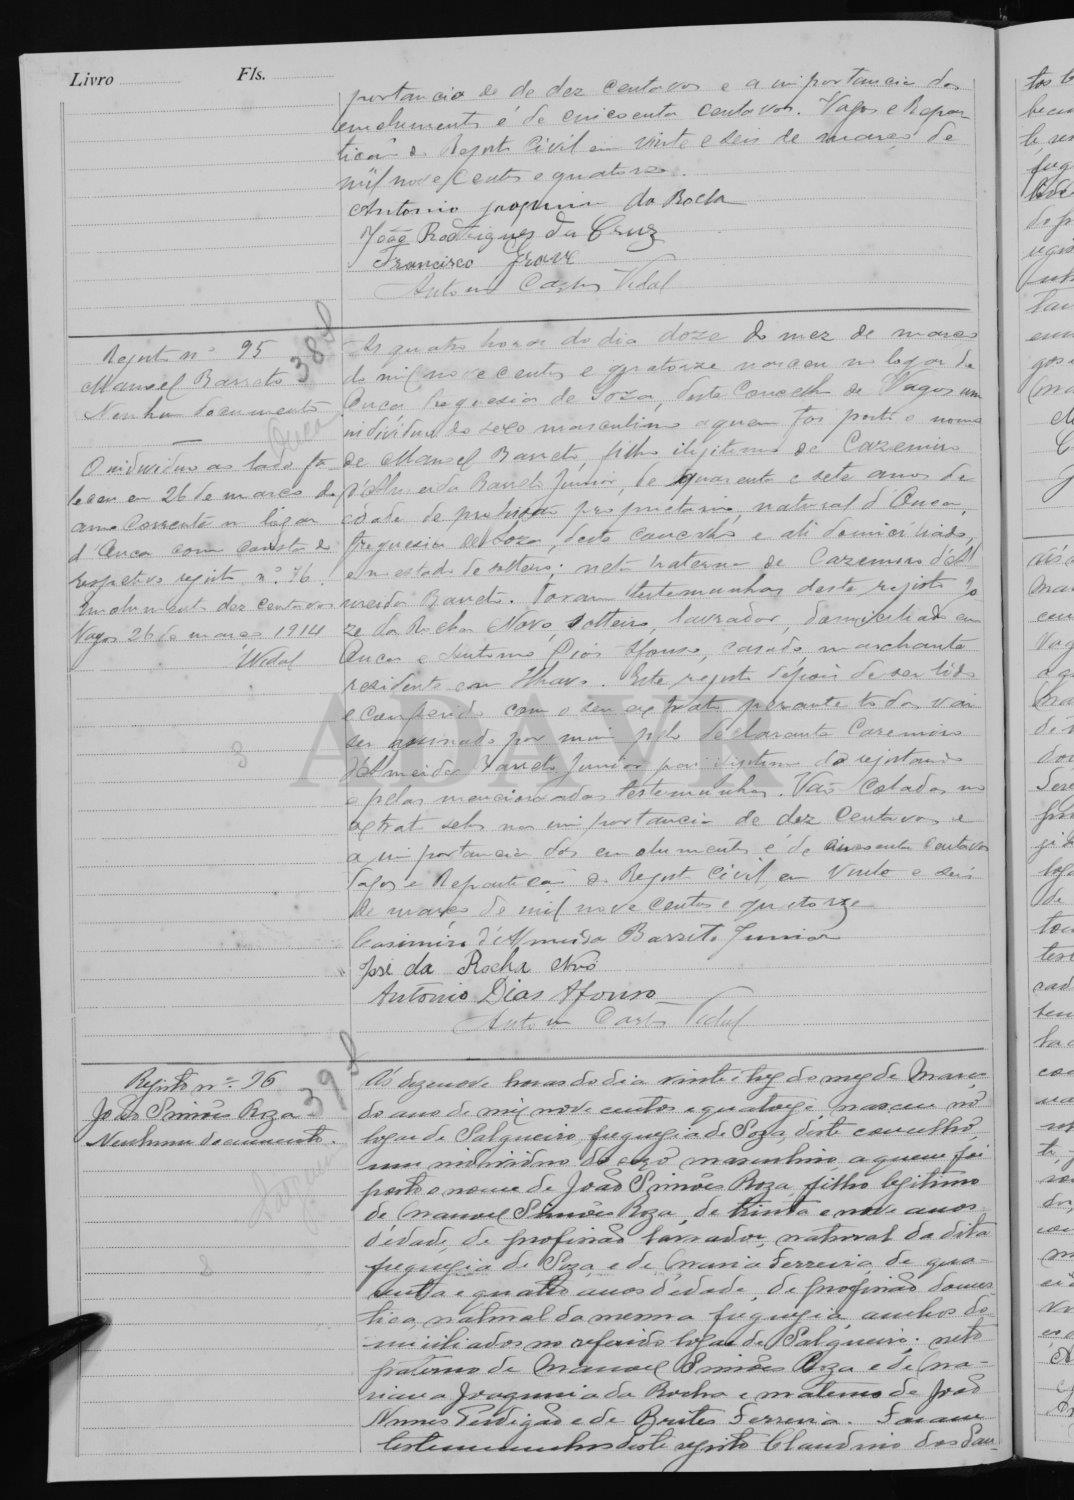 Livro Fls.
portancia de dez centavos e a importancia dos
emolumentos é de cincoenta centavos. Vagos e Repar
tição do Registo Civil em vinte e seis de março de
mil nove centos e quatorze.
Antonio Joaquim da Rocha
João Rodrigues da Cruz
Francisco Grave
Antonio Carlos Vidal
Registo nº 95
Manoel Barreto
Nenhum documento
38
Ouca
O individuo ao lado fa
leceu em 26 de março do
anno corrente no logar
d'Ouca como consta do
respectivo registo nº 76.
Emolumentos dez centavos
Vagos 26 de março 1914
Vidal
3
Ás quatro horas do dia doze do mez de março
de mil nove centos e quatorze nasceu no logar de
Ouca freguesia de Soza, deste Concelho de Vagos um
individuo do sexo masculino a quem foi posto o nome
de Manoel Barreto, filho ilegitimo de Cazemiro
d'Almeida Barreto Junior, de quarenta e sete anos de
edade de profissão proprietario, natural d'Ouca,
freguesia de Soza, deste concelho e ali domiciliado,
e no estado de solteiro; neto paterno de Cazemiro d'Al
meida Barreto. Foram testemunhas deste registo Jo
ze da Rocha Novo, solteiro, lavrador, domiciliado em
Ouca e Antonio Dias Afonso, casado, marchante
residente em Ilhavo. Este registo depois de ser lido
e conferido com o seu extrato perante todos vai
ser assinado por mim pelo declarante Cazemiro
d'Almeida Barreto Junior pai do registado
e pelas mencionadas testemunhas. Vão colados no
extrato selos na importancia de dez centavos e
a importancia dos emolumentos é de cincoenta centavos
Vagos e Repartição do Registo Civil, em vinte e seis
de março de mil nove centos e quatorze
Casimiro d'Almeida Barreto Junior
José da Rocha Novo
Antonio Dias Afonso
Antonio Carlos Vidal
ADAVR
Registo nº 96
João Simões Roza
Nenhum documento.
39
Salgueiro
Ás dezenove horas do dia vinte e tres do mez de Março
do ano de mil nove centos e quatorze, nasceu no
logar de Salgueiro, freguezia de Soza, deste concelho,
um individuo do sexo masculino a quem foi
posto o nome de João Simões Roza, filho legitimo
de Manoel Simões Roza, de trinta e nove anos
d'edade, de profissão lavrador, natural da dita
freguezia de Soza e de Maria Ferreira, de qua-
renta e quatro anos d'edade, de profissão domes-
tica, natural da mesma freguezia, ambos do-
miciliados no referido logar de Salgueiro; neto
paterno de Manoel Simões Roza e de Ma-
riana Joaquina da Rocha e materno de João
Nunes Perdigão e de Brites Ferreira. Foram
testemunhas deste registo Claudino dos San-